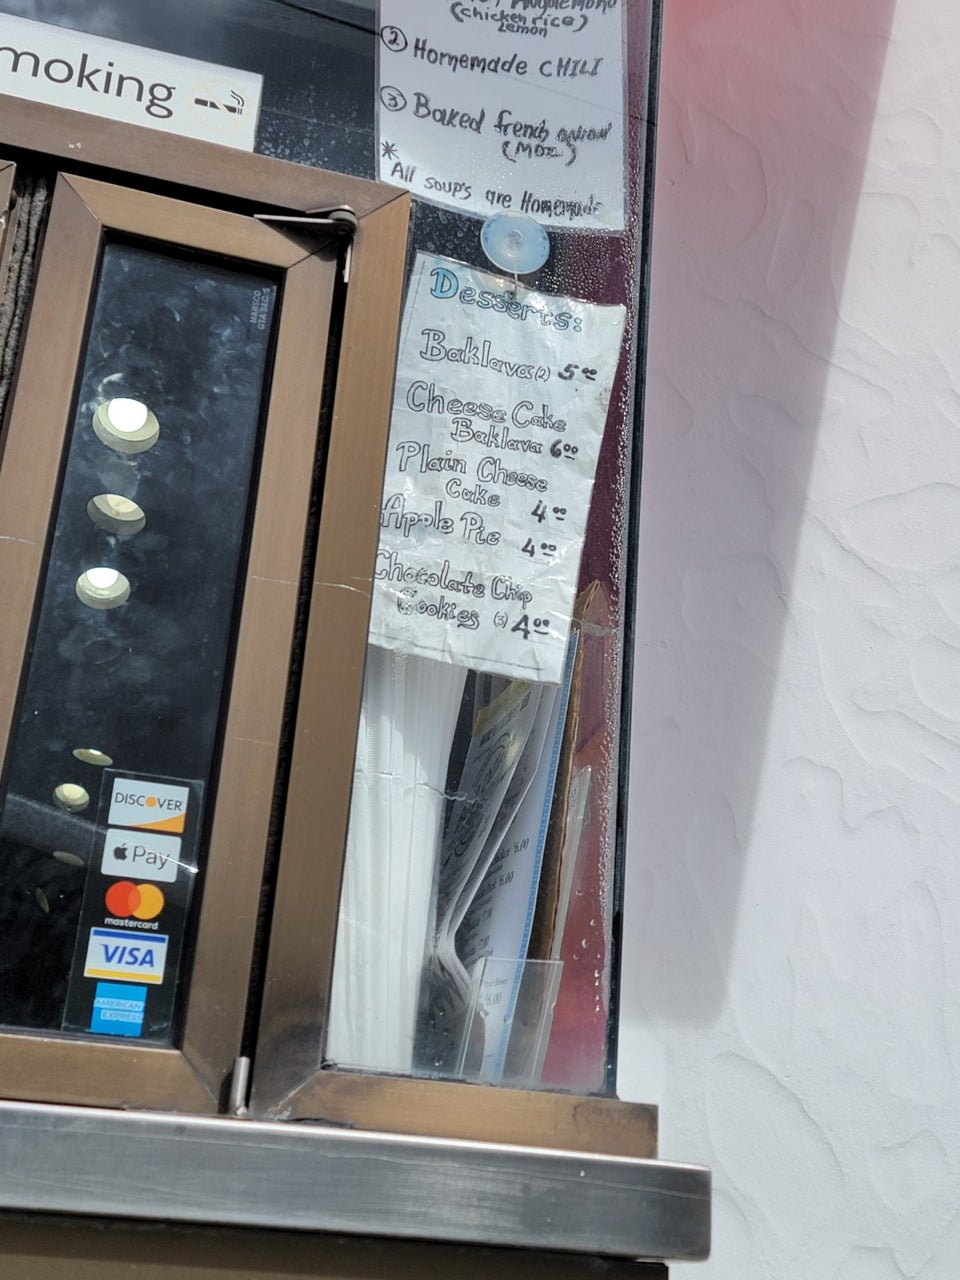 moking
(chicken rice)
Lemon
② Homemade CHILI
③ Baked french
(MOZ)
*
All soup's are Homemade
Desserts:
Baklava (2) 5.00
Cheese Cake
Baklava 6.00
Plain Cheese
Cake 4.00
Apple Pie 4.00
Chocolate Chip
Cookies (3) 4.00
DISCOVER
Pay
mastercard
VISA
AMERICAN
EXPRESS
$6.00
$6.00